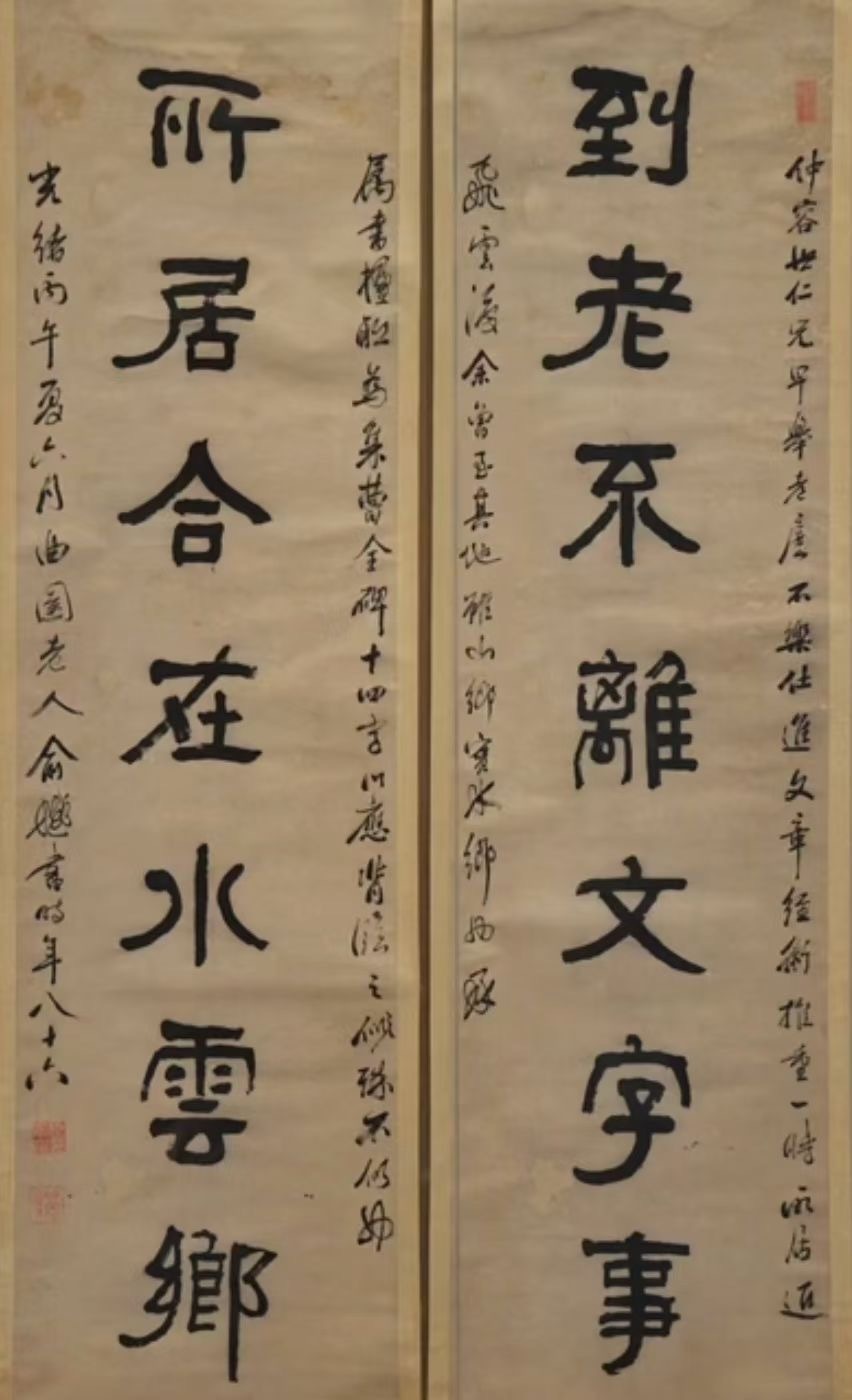 仲容世仁兄早舉孝廉不樂仕進文章經術推重一時所居近
到老不離文字事
飛雲渡余曾至其地雖山鄉實水鄉也承
屬書楹聯為集曹全碑十四字以應臨之殊不也
所居合在水雲鄉
光緒丙午夏六月曲園老人俞樾書時年八十六